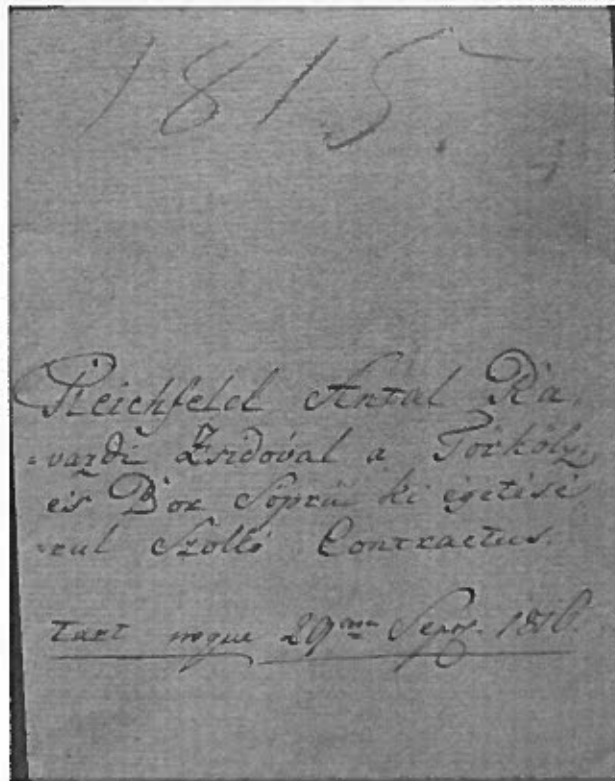 1815.
Reichfeld Antal Rá-
-vazdi Zsidóval a Törköly
és Bor Seprü ki égetésé
-rul Szolló Contractus.
tart usque 29ma Sepr. 1816.